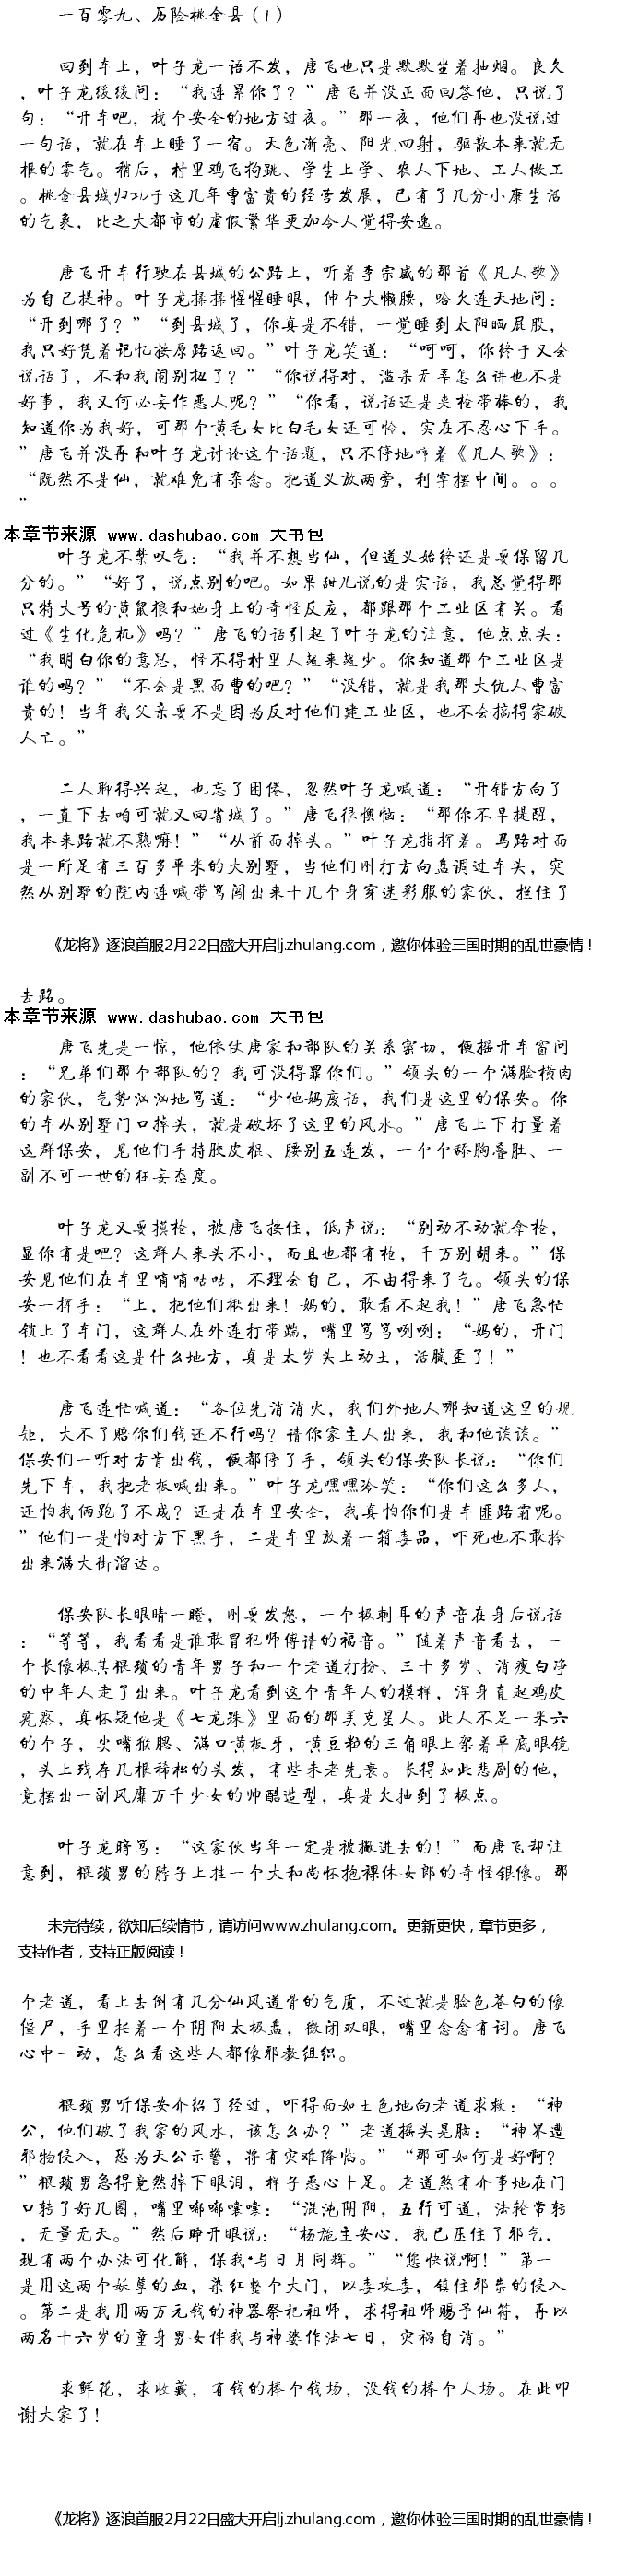 一百零九、历险桃金县（1）
回到车上，叶子龙一语不发，唐飞也只是默默坐着抽烟。良久
，叶子龙缓缓问：“我连累你了？”唐飞并没正面回答他，只说了
句：“开车吧，找个安全的地方过夜。”那一夜，他们再也没说过
一句话，就在车上睡了一宿。天色渐亮、阳光四射，驱散本来就无
根的雾气。稍后，村里鸡飞狗跳、学生上学、农人下地、工人做工
。桃金县城归功于这几年曹富贵的经营发展，已有了几分小康生活
的气象，比之大都市的虚假繁华更加令人觉得安逸。
唐飞开车行驶在县城的公路上，听着李宗盛的那首《凡人歌》
为自己提神。叶子龙揉揉惺惺睡眼，伸个大懒腰，哈欠连天地问：
“开到哪了？”“到县城了，你真是不错，一觉睡到太阳晒屁股，
我只好凭着记忆按原路返回。”叶子龙笑道：“呵呵，你终于又会
说话了，不和我闹别扭了？”“你说得对，滥杀无辜怎么讲也不是
好事，我又何必妄作恶人呢？”“你看，说话还是夹枪带棒的，我
知道你为我好，可那个黄毛女比白毛女还可怜，实在不忍心下手。
”唐飞并没再和叶子龙讨论这个话题，只不停地哼着《凡人歌》：
“既然不是仙，就难免有杂念。把道义放两旁，利字摆中间。。。
”
本章节来源 www.dashubao.com 大书包
叶子龙不禁叹气：“我并不想当仙，但道义始终还是要保留几
分的。”“好了，说点别的吧。如果甜儿说的是实话，我总觉得那
只特大号的黄鼠狼和她身上的奇怪反应，都跟那个工业区有关。看
过《生化危机》吗？”唐飞的话引起了叶子龙的注意，他点点头：
“我明白你的意思，怪不得村里人越来越少。你知道那个工业区是
谁的吗？”“不会是黑面曹的吧？”“没错，就是我那大仇人曹富
贵的！当年我父亲要不是因为反对他们建工业区，也不会搞得家破
人亡。”
二人聊得兴起，也忘了困倦，忽然叶子龙喊道：“开错方向了
，一直下去咱可就又回省城了。”唐飞很懊恼：“那你不早提醒，
我本来路就不熟嘛！”“从前面掉头。”叶子龙指挥着。马路对面
是一所足有三百多平米的大别墅，当他们刚打方向盘调过车头，突
然从别墅的院内连喊带骂闯出来十几个身穿迷彩服的家伙，拦住了
《龙将》逐浪首服2月22日盛大开启lj.zhulang.com，邀你体验三国时期的乱世豪情！
去路。
本章节来源 www.dashubao.com 大书包
唐飞先是一惊，他依仗唐家和部队的关系密切，便摇开车窗问
：“兄弟们那个部队的？我可没得罪你们。”领头的一个满脸横肉
的家伙，气势汹汹地骂道：“少他妈废话，我们是这里的保安。你
的车从别墅门口掉头，就是破坏了这里的风水。”唐飞上下打量着
这群保安，见他们手持胶皮棍、腰别五连发，一个个舔胸叠肚、一
副不可一世的狂妄态度。
叶子龙又要摸枪，被唐飞按住，低声说：“别动不动就拿枪，
显你有是吧？这群人来头不小，而且也都有枪，千万别胡来。”保
安见他们在车里嘀嘀咕咕，不理会自己，不由得来了气。领头的保
安一挥手：“上，把他们揪出来！妈的，敢看不起我！”唐飞急忙
锁上了车门，这群人在外连打带踹，嘴里骂骂咧咧：“妈的，开门
！也不看看这是什么地方，真是太岁头上动土，活腻歪了！”
唐飞连忙喊道：“各位先消消火，我们外地人哪知道这里的规
矩，大不了赔你们钱还不行吗？请你家主人出来，我和他谈谈。”
保安们一听对方肯出钱，便都停了手，领头的保安队长说：“你们
先下车，我把老板喊出来。”叶子龙嘿嘿冷笑：“你们这么多人，
还怕我俩跑了不成？还是在车里安全，我真怕你们是车匪路霸呢。
”他们一是怕对方下黑手，二是车里放着一箱毒品，吓死也不敢拎
出来满大街溜达。
保安队长眼睛一瞪，刚要发怒，一个极刺耳的声音在身后说话
：“等等，我看看是谁敢冒犯师傅请的福音。”随着声音看去，一
个长像极其猥琐的青年男子和一个老道打扮、三十多岁、消瘦白净
的中年人走了出来。叶子龙看到这个青年人的模样，浑身直起鸡皮
疙瘩，真怀疑他是《七龙珠》里面的那美克星人。此人不足一米六
的个子，尖嘴猴腮、满口黄板牙，黄豆粒的三角眼上架着平底眼镜
，头上残存几根稀松的头发，有些未老先衰。长得如此悲剧的他，
竟摆出一副风靡万千少女的帅酷造型，真是欠抽到了极点。
叶子龙暗骂：“这家伙当年一定是被搋进去的！”而唐飞却注
意到，猥琐男的脖子上挂一个大和尚怀抱裸体女郎的奇怪银像。那
未完待续，欲知后续情节，请访问www.zhulang.com。更新更快，章节更多，
支持作者，支持正版阅读！
个老道，看上去倒有几分仙风道骨的气质，不过就是脸色苍白的像
僵尸，手里托着一个阴阳太极盘，微闭双眼，嘴里念念有词。唐飞
心中一动，怎么看这些人都像邪教组织。
猥琐男听保安介绍了经过，吓得面如土色地向老道求救：“神
公，他们破了我家的风水，该怎么办？”老道摇头晃脑：“神界遭
邪物侵入，恐为天公示警，将有灾难降临。”“那可如何是好啊？
”猥琐男急得竟然掉下眼泪，样子恶心十足。老道煞有介事地在门
口转了好几圈，嘴里嘟嘟囔囔：“混沌阴阳，五行可道，法轮常转
，无量无天。”然后睁开眼说：“杨施主安心，我已压住了邪气，
现有两个办法可化解，保我·与日月同辉。”“您快说啊！”第一
是用这两个妖孽的血，染红整个大门，以毒攻毒，镇住邪祟的侵入
。第二是我用两万元钱的神器祭祀祖师，求得祖师赐予仙符，再以
两名十六岁的童身男女伴我与神婆作法七日，灾祸自消。”
求鲜花，求收藏，有钱的捧个钱场，没钱的捧个人场。在此叩
谢大家了！
《龙将》逐浪首服2月22日盛大开启lj.zhulang.com，邀你体验三国时期的乱世豪情！